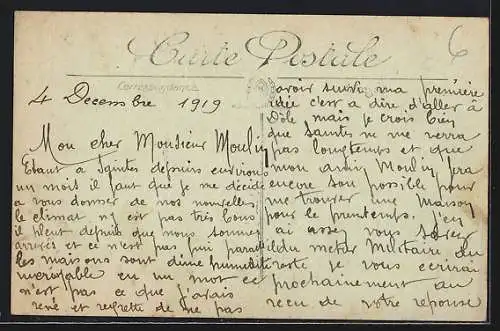 Carte Postale
6
Correspondance
4 Decembre 1919
Mon cher Monsieur Moulin
Etant a Saintes depuis environ
un mois il faut que je me décide
a vous donser de nos nouvelles
le climat ny est pas très bons
il pleut depuis que nous sommes
arrivés et ce n'est pas fini parait
les maisons sont d'une humidité
incroyable en un mot ce
n'est pas ce que j'avais
révé et regrette de ne pas
avoir suivi ma première
idée c'est a dire d'aller à
Dôle mais je crois bien
que Saintes ne me verra
pas longtemps et que
mon ami Moulin fera
encore son possible pour
me trouver une maison
pour le printemps. j'en
ai assez vous savez
du metier Militaire du
reste je vous ecrirai
prochainement au
recu de votre reponse